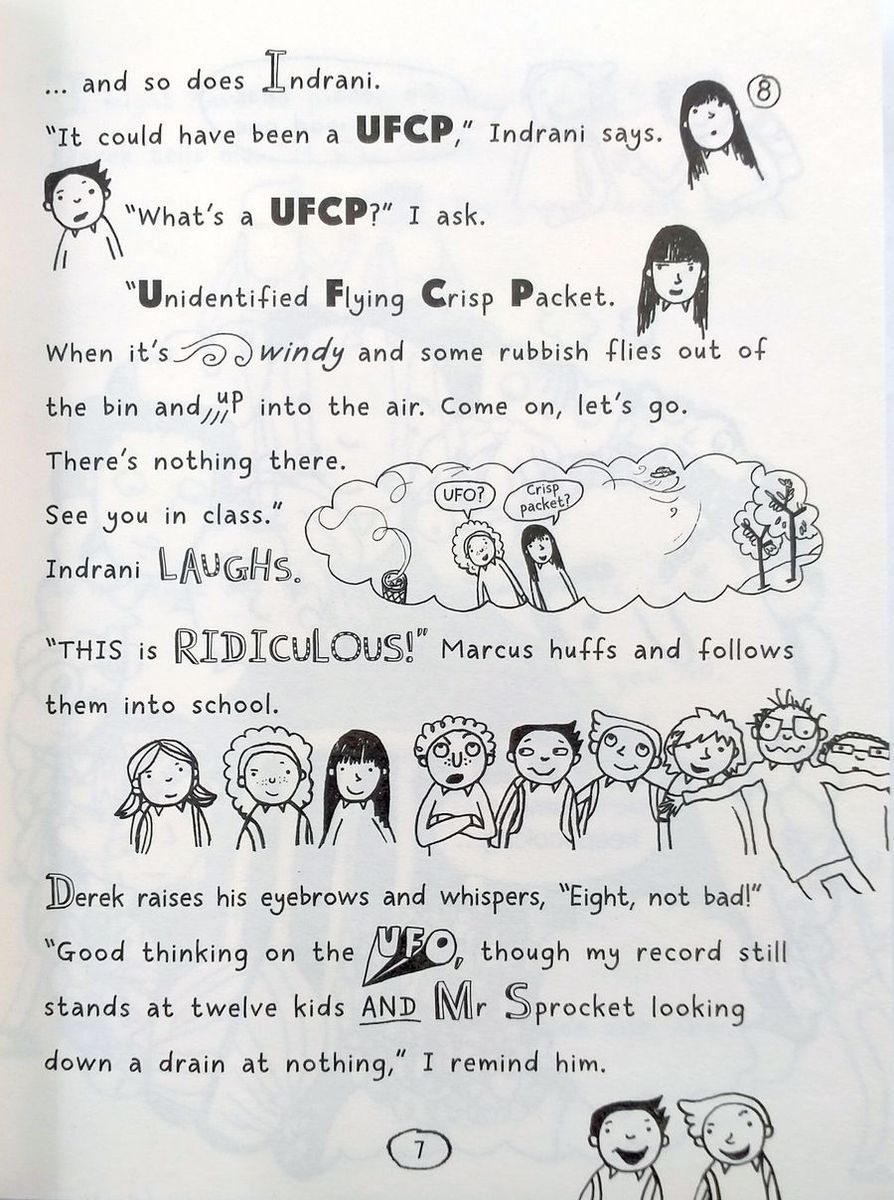 ... and so does Indrani.
8
"It could have been a UFCP," Indrani says.
"What's a UFCP?" I ask.
"Unidentified Flying Crisp Packet.
When it's windy and some rubbish flies out of
the bin and up into the air. Come on, let's go.
There's nothing there.
See you in class."
Indrani LAUGHS.
UFO?
Crisp
packet?
"THIS is RIDICULOUS!" Marcus huffs and follows
them into school.
Derek raises his eyebrows and whispers, "Eight, not bad!"
"Good thinking on the UFO, though my record still
stands at twelve kids AND Mr Sprocket looking
down a drain at nothing," I remind him.
7